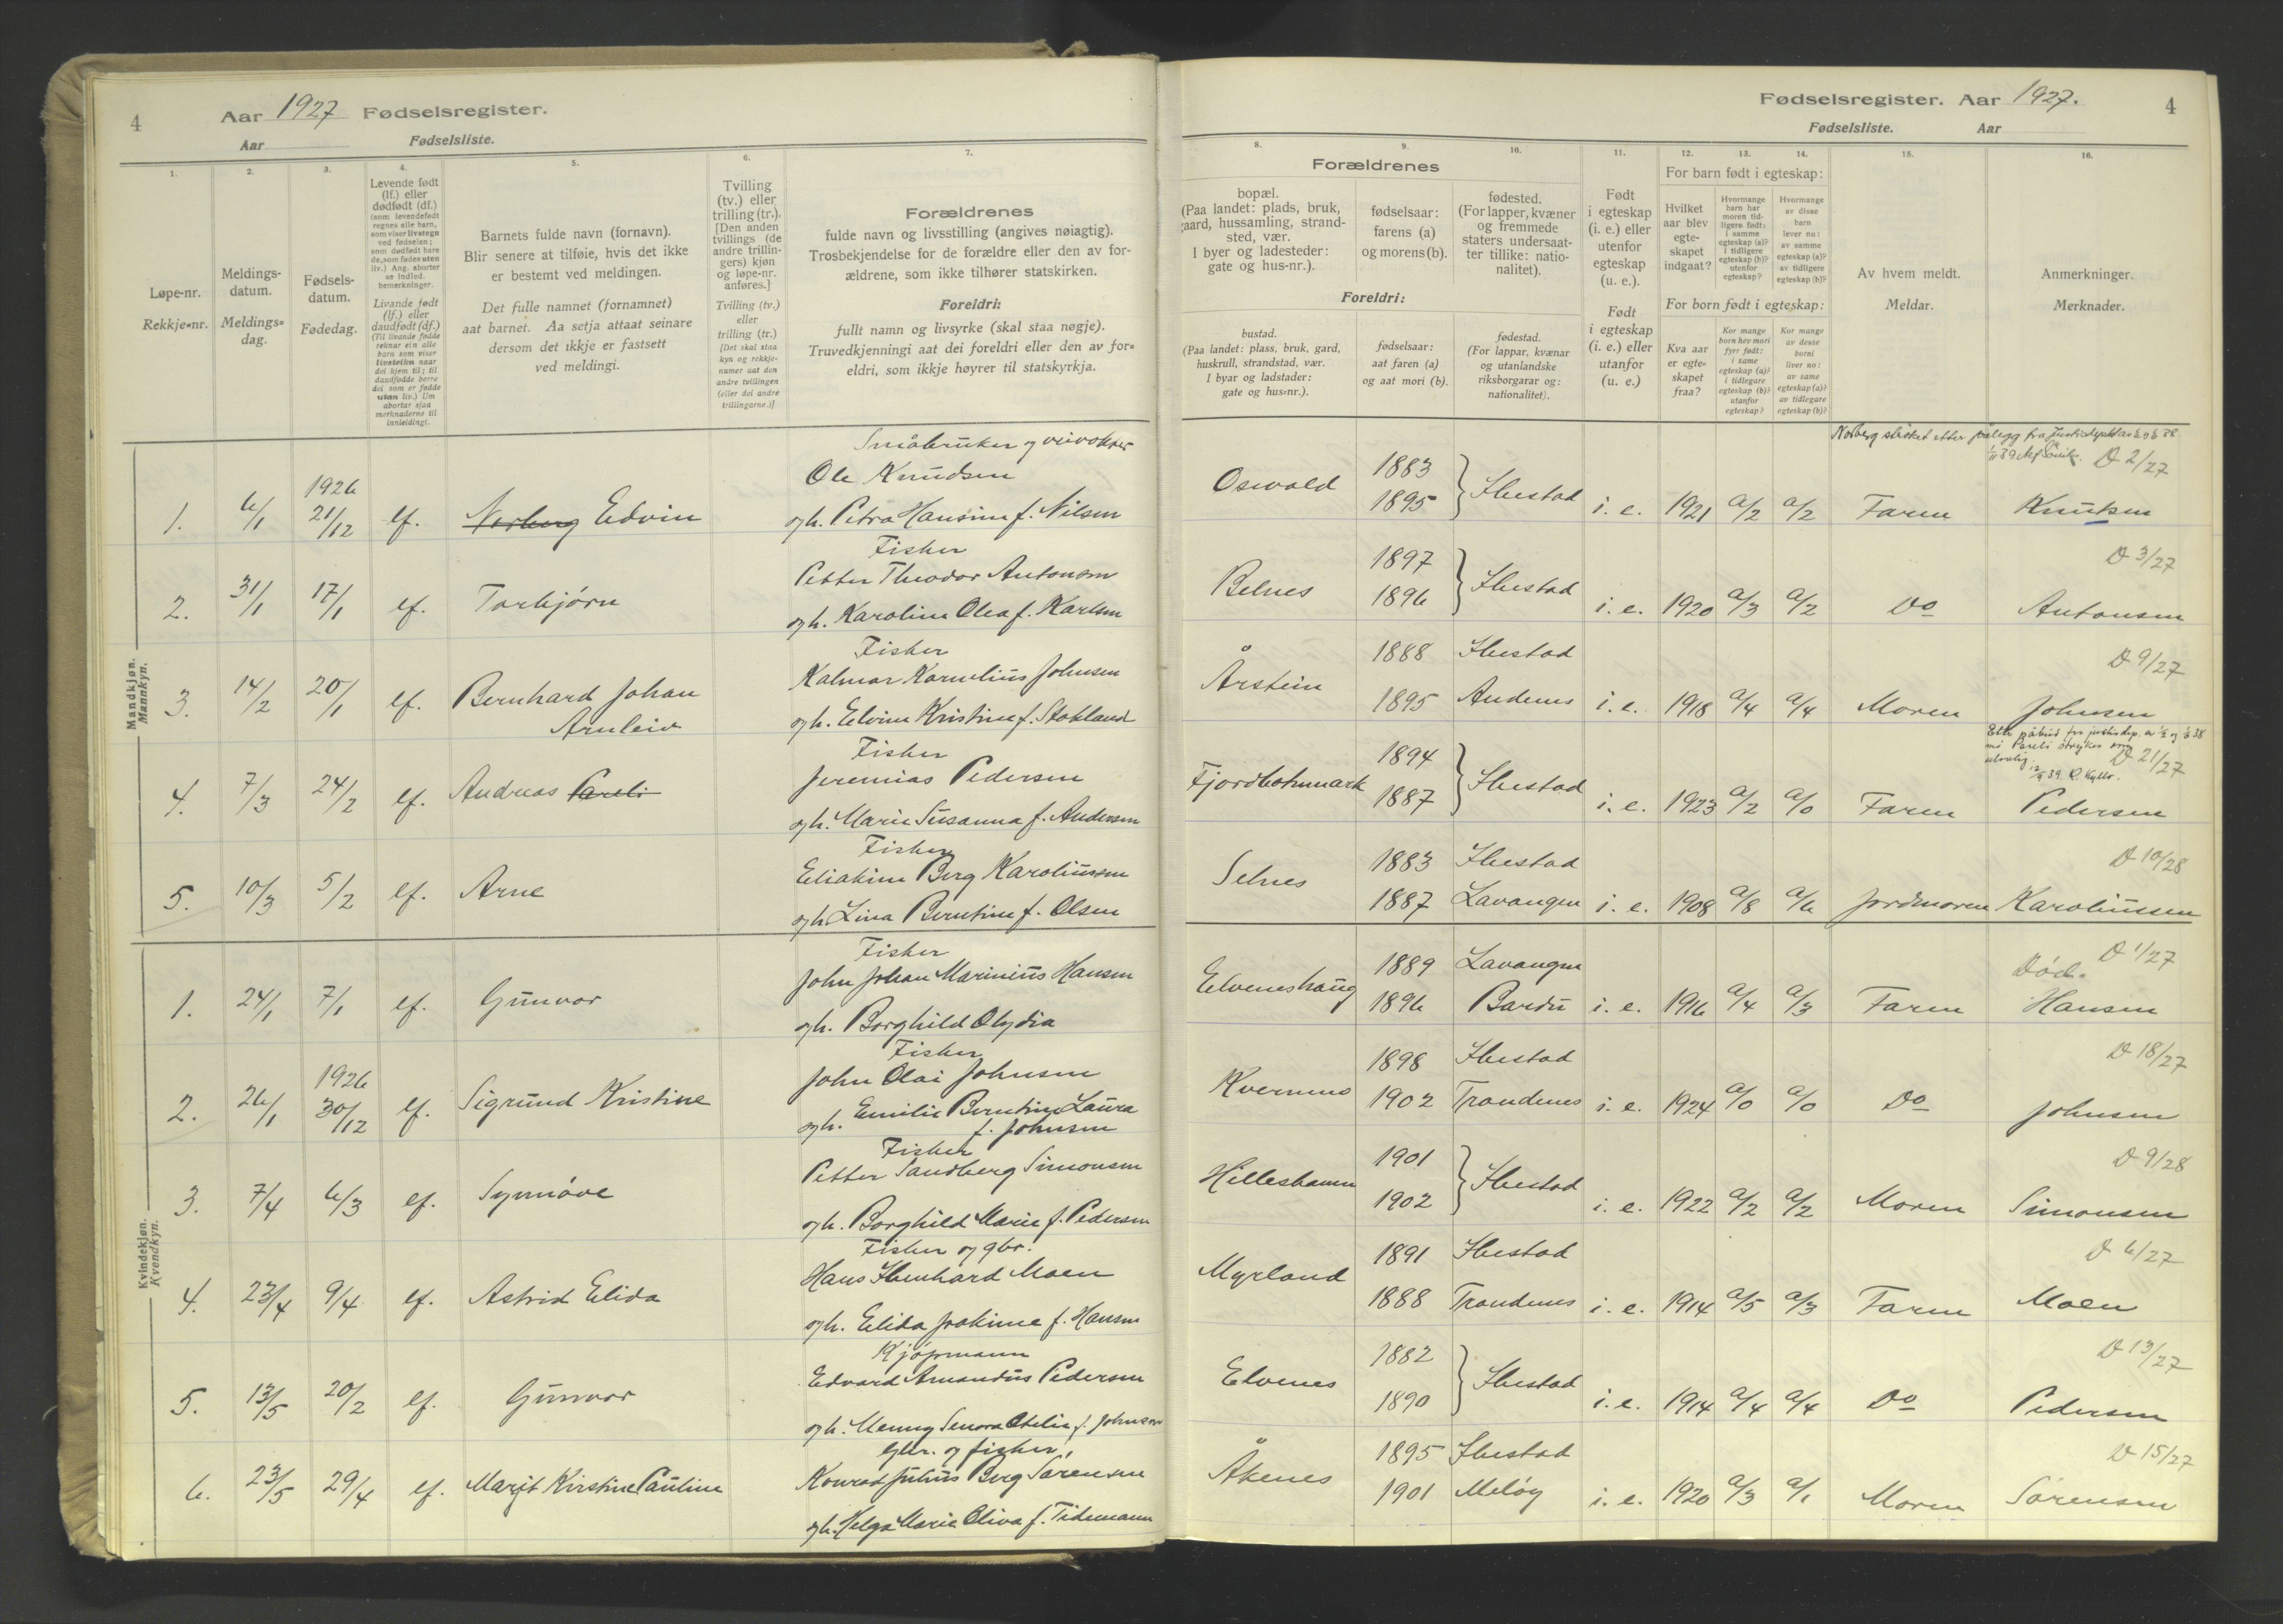 4
Aar 1927 Fødselsregister.
Aar Fødselsliste.
1.
2.
3.
4.
5.
6.
7.
Løpe-nr.
Rekkje=nr.
Meldings-
datum.
Meldings=
dag.
Fødsels-
datum.
Fødedag.
Levende født
(lf.) eller
dødfødt (df.)
(som levendefødt
regnes alle barn,
som viser livstegn
ved fødselen;
som dødfødt bare
de, som fødes uten
liv.) Ang. aborter
se indled.
bemerkninger.
Livande født
(lf.) eller
daudfødt (df.)
(Til livande fødde
reknar ein alle
barn som viser
livsteikn naar
dei kjem til; til
daudfødde berre
dei som er fødde
utan liv.) Um
abortar sjaa
merknaderne til
innleidingi.
Barnets fulde navn (fornavn).
Blir senere at tilføie, hvis det ikke
er bestemt ved meldingen.
Det fulle namnet (fornamnet)
aat barnet. Aa setja attaat seinare
dersom det ikkje er fastsett
ved meldingi.
Tvilling
(tv.) eller
trilling (tr.).
[Den anden
tvillings (de
andre trillin-
gers) kjøn
og løpe-nr.
anføres.]
Tvilling (tv.)
eller
trilling (tr.)
[Det skal staa
kyn og rekkje-
numer aat den
andre tvillingen
(eller dei andre
trillingarne.)]
Forældrenes
fulde navn og livsstilling (angives nøiagtig).
Trosbekjendelse for de forældre eller den av for-
ældrene, som ikke tilhører statskirken.
Foreldri:
fullt namn og livsyrke (skal staa nøgje).
Truvedkjenningi aat dei foreldri eller den av for=
eldri, som ikkje høyrer til statskyrkja.
Mandkjøn.
Mannkyn.
Småbruker og veivokter
Ole Knudsen
1. 6/1 1926 21/12 lf. Norberg Edvin
og h. Petra Hansine f. Nilsen
Fisker
Petter Theodor Antonsen
2. 31/1 17/1 lf. Torbjørn
og h. Karoline Olea f. Karlsen
Fisker
Kalmar Kornelius Johnsen
3. 14/2 20/1 lf. Bernhard Johan
Arnleiv
og h. Elvine Kristine f. Stokland
Fisker
Jeremias Pedersen
4. 7/3 24/2 lf. Andreas Pareli
og h. Marie Susanna f. Andersen
Fisker
Eliakim Berg Karoliussen
5. 10/3 5/2 lf. Arne
og h. Lina Berntine f. Olsen
Kvindekjøn.
Kvendkyn.
Fisker
John Johan Marinius Hansen
1. 24/1 7/1 lf. Gunvor
og h. Borghild Olydia
Fisker
John Olai Johnsen
2. 26/1 1926 30/12 lf. Sigrund Kristine
og h. Emilie Berntine Laura
f. Johnsen
Fisker
Petter Sandberg Simonsen
3. 7/4 6/3 lf. Synnøve
og h. Borghild Marie f. Pedersen
Fisker og gbr.
Hans Ibenhard Moen
4. 23/4 9/4 lf. Astrid Elida
og h. Elida Joakime f. Hansen
Kjøpmann
Edvard Amandus Pedersen
5. 13/5 20/2 lf. Gunvor
og h. Menny Senora Otelie f. Johnsen
Gbr. og fisker
Konrad Julius Berg Sørensen
6. 23/5 29/4 lf. Marit Kirstine Pauline
og h. Helga Marie Oliva f. Tidemann
Fødselsregister. Aar 1927.
4
Fødselsliste. Aar
8.
9.
10.
11.
12.
13.
14.
15.
16.
Forældrenes
bopæl.
(Paa landet: plads, bruk,
gaard, hussamling, strand-
sted, vær.
I byer og ladesteder:
gate og hus-nr.).
fødselsaar:
farens (a)
og morens (b).
fødested.
(For lapper, kvæner
og fremmede
staters undersaat-
ter tillike: natio-
nalitet).
Foreldri:
bustad.
(Paa landet: plass, bruk, gard,
huskrull, strandstad, vær.
I byar og ladstader:
gate og hus=nr.).
fødselsaar:
aat faren (a)
og aat mori (b).
fødestad.
(For lappar, kvænar
og utanlandske
riksborgarar og:
nationalitet).
Født
i egteskap
(i. e.) eller
utenfor
egteskap
(u. e.).
Født
i egteskap
(i. e.) eller
utanfor
(u. e.)
For barn født i egteskap:
Hvilket
aar blev
egte-
skapet
indgaat?
Hvormange
barn har
moren tid-
ligere født:
i samme
egteskap (a)?
i tidligere
egteskap (b)?
utenfor
egteskap?
Hvormange
av disse
barn
lever nu:
av samme
egteskap (a)?
av tidligere
egteskap (b)?
For born født i egteskap:
Kva aar
er egte-
skapet
fraa?
Kor mange
born hev mori
fyrr født:
i same
egteskap (a)?
i tidlegare
egteskap (b)?
utanfor
egteskap?
Kor mange
av desse
borni
liver no:
av same
egteskap (a)?
av tidlegare
egteskap (b)?
Av hvem meldt.
Meldar.
Anmerkninger.
Merknader.
Norberg strøket etter pålegg fra Justisdep.
D 2/27
Osvald 1883 1895 Ibestad i. e. 1921 a/2 a/2 Faren Knutsen
D 3/27
Belnes 1897 1896 Ibestad i. e. 1920 a/3 a/2 Do Antonsen
D 9/27
Årstein 1888 Ibestad
1895 Andenes i. e. 1918 a/4 a/4 Moren Johnsen
Etter påbud fra justisdep. av
må Pareli strykes som
ulovlig.
D 21/27
Fjordbotnmark 1894 1887 Ibestad i. e. 1923 a/2 a/0 Faren Pedersen
D 10/28
Selnes 1883 Ibestad
1887 Lavangen i. e. 1908 a/8 a/6 Jordmoren Karoliussen
D 1/27
Død.
Elveneshaug 1889 Lavangen
1896 Bardu i. e. 1916 a/4 a/3 Faren Hansen
D 18/27
Kvernnes 1898 Ibestad
1902 Trondenes i. e. 1924 a/0 a/0 Do Johnsen
D 9/28
Hilleshamn 1901 1902 Ibestad i. e. 1922 a/2 a/2 Moren Simonsen
D 6/27
Myrland 1891 Ibestad
1888 Trondenes i. e. 1914 a/5 a/3 Faren Moen
D 13/27
Elvenes 1882 1890 Ibestad i. e. 1914 a/4 a/4 Do Pedersen
D 15/27
Åkenes 1895 Ibestad
1901 Meløy i. e. 1920 a/3 a/1 Moren Sørensen